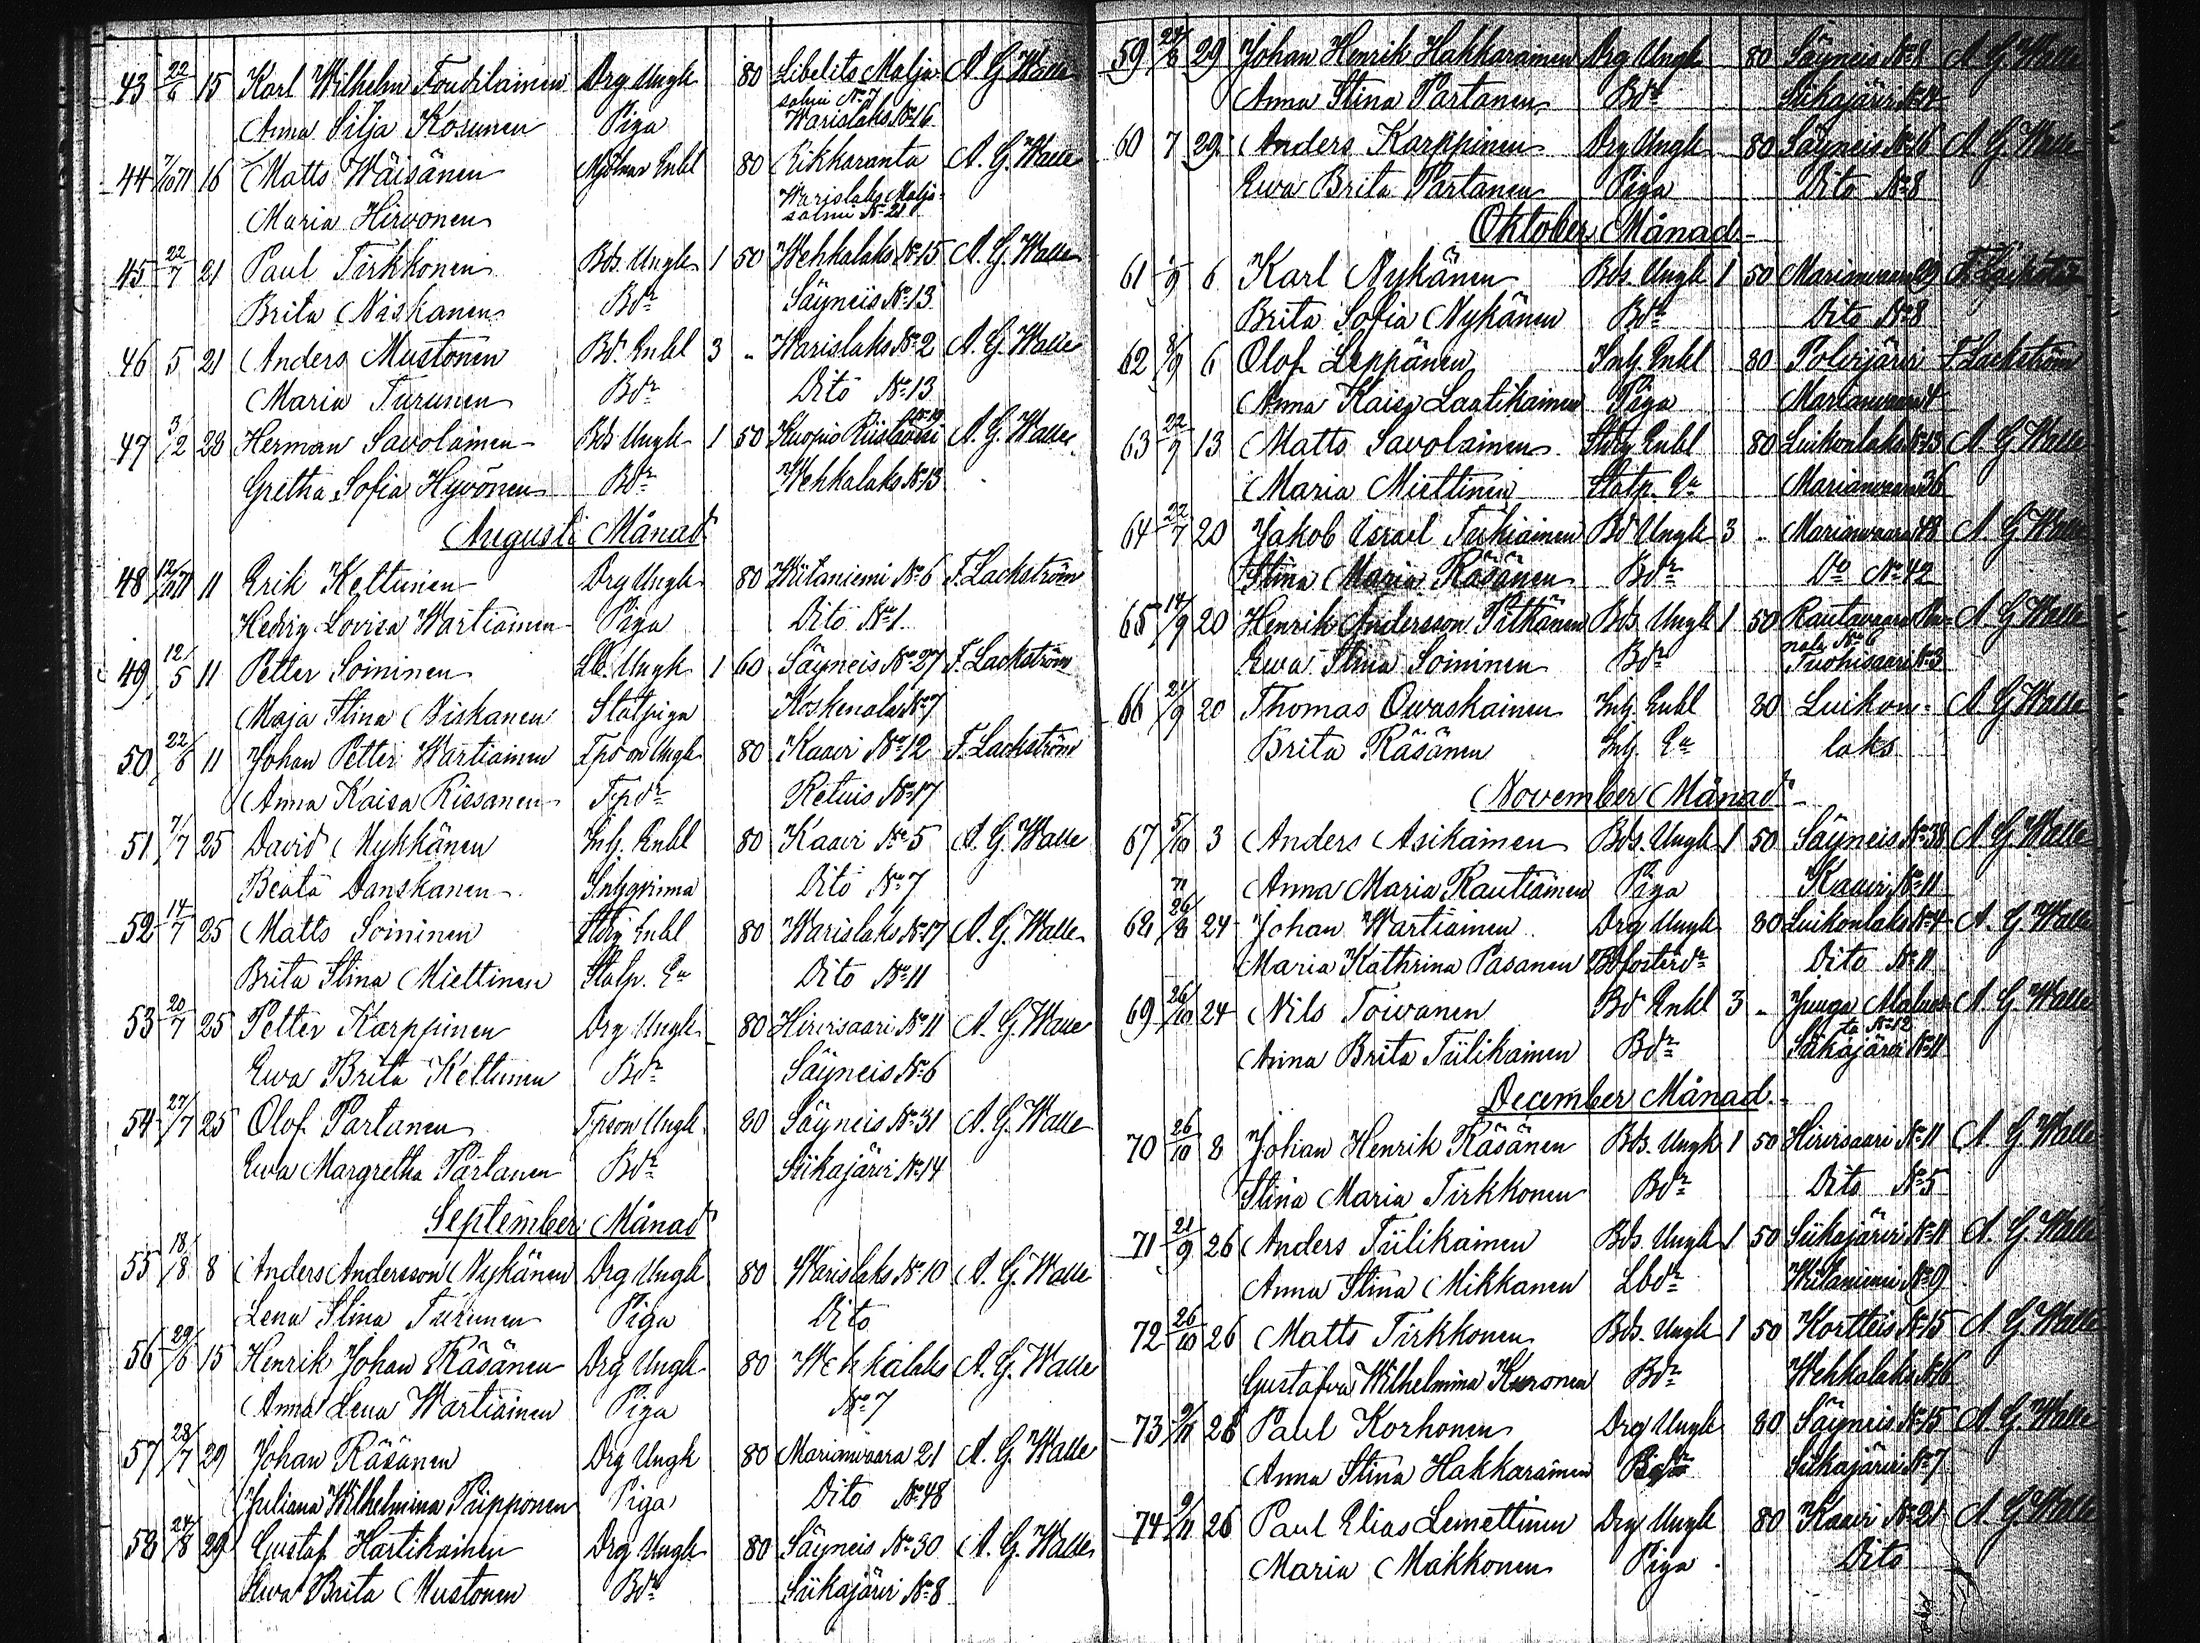 43 22/6 15 Karl Wilhelm Toudilainen Drg Ungk 80 Libelits Malja- A. G. Walle
salmi No 7
Anna Silja Kosunen Piga Warislaks No 16
44 7/10 71 16 Matts Wäisänen Mjölnar Enkl 80 Rikkaranta A. G. Walle
Warislaks Malja-
salmi No 21
Maria Hirvonen
45 22/7 21 Paul Tirkkonen Bds. Ungk 1 50 Wehkalaks No 15 A. G. Walle
Brita Niskanen Bdr Säyneis No 13
46 5 21 Anders Mustonen Bd. Enkl 3 - Warislaks No 2 A. G. Walle
Maria Turunen Bdr Dito No 13
47 3/2 28 Herman Savolainen Bds Ungk 1 50 Kuopio A. G. Walle
Gretha Sofia Hyvönen Bdr Wehkalaks No 13
Augusti Månad
48 12/10 71 11 Erik Kettunen Drg Ungk 80 Wiitaniemi No 6 F. Lackström
Hedvig Lovisa Wartiainen Piga Dito No 1
49 12/5 11 Petter Soininen Lb. Ungk 1 60 Säyneis No 27 F. Lackström
Maja Stina Niskanen Statpiga Koskenala No 7
50 22/6 11 Johan Petter Wartiainen Tpson Ungk 80 Kaavi No 12 F. Lackström
Anna Kaisa Rissanen Tpdr Retuis No 17
51 7/7 25 David Nykkänen Inh. Enkl 80 Kaavi No 5 A. G. Walle
Beata Danskanen Inhqvinna Dito No 7
52 14/7 25 Matts Soininen Stdrg Enkl 80 Warislaks No 17 A. G. Walle
Brita Stina Miettinen Statp. Ea Dito No 11
53 20/7 25 Petter Karppinen Drg Ungk 80 Hirvisaari No 11 A. G. Walle
Ewa Brita Kettunen Bdr Säyneis No 6
54 27/7 25 Olof Partanen Tpson Ungk 80 Säyneis No 31 A. G. Walle
Ewa Margretha Partanen Bdr Siikajärvi No 14
September Månad
55 18/8 8 Anders Andersson Nykänen Drg Ungk 80 Warislaks No 10 A. G. Walle
Lena Stina Turunen Piga Dito
56 29/6 15 Henrik Johan Räsänen Drg Ungk 80 Wehkalaks A. G. Walle
Anna Lena Wartiainen Piga No 7
57 28/7 29 Johan Räsänen Drg Ungk 80 Marianvaara 21 A. G. Walle
Juliana Wilhelmina Piipponen Piga Dito No 48
58 24/8 29 Gustaf Hartikainen Drg Ungk 80 Säyneis No 30 A. G. Walle
Ewa Brita Mustonen Bdr Siikajärvi No 8
59 29 Johan Henrik Hakkarainen Drg Ungk 80 Säyneis No 8 A. G. Walle
Anna Stina Partanen Bdr Siikajärvi No 14
60 7 29 Anders Karppinen Drg Ungk 80 Säyneis No 16 A. G. Walle
Ewa Brita Partanen Piga Dito No 8
Oktober Månad
61 1/9 6 Karl Nykänen Bds. Ungk 1 50 Marianvaara 29
Brita Sofia Nykänen Bdr Dito No 8
62 8/9 6 Olof Leppänen Inh. Enkl 80 Polvijärvi F. Lackström
Anna Kaisa Laatikainen Piga Marianvaara 4
63 22/9 13 Matts Savolainen Stdrg Enkl 80 Luikonlaks No 13 A. G. Walle
Maria Miettinen Statp. Ea Marianvaara 36
64 22/7 20 Jakob Israel Tukiainen Bd Ungk 3 - Marianvaara 48 A. G. Walle
Stina Maria Räsänen Bdr Do No 42
65 14/9 20 Henrik Andersson Pitkänen Bds. Ungk 1 50 Rautavaara A. G. Walle
Ewa Stina Soininen Bdr Tuohisaari No 3
66 21/9 20 Thomas Ouvaskainen Inh. Enkl 80 Luikon- A. G. Walle
Brita Räsänen Inh. Ea laks
November Månad
67 5/10 3 Anders Asikainen Bds. Ungk 1 50 Säyneis No 38 A. G. Walle
Anna Maria Rautiainen Piga Kaavi No 11
68 24 Johan Wartiainen Drg Ungk 80 Luikonlaks No 4 A. G. Walle
Maria Kathrina Pasanen Bdfosterdr Dito No 11
69 26/10 24 Nils Toivanen Bd Enkl 3 - Juuga A. G. Walle
No 12
Anna Brita Tiilikainen Bdr Siikajärvi No 11
December Månad
70 26/10 8 Johan Henrik Räsänen Bds. Ungk 1 50 Hirvisaari No 11 A. G. Walle
Stina Maria Tirkkonen Bdr Dito No 5
71 21/9 26 Anders Tiilikainen Bds. Ungk 1 50 Siikajärvi No 11 A. G. Walle
Anna Stina Mikkanen Lbdr Wiitaniemi No 9
72 26/10 26 Matts Tirkkonen Bds. Ungk 1 50 Kortteis No 15 A. G. Walle
Gustafva Wilhelmina Kuronen Bdr Wehkalaks No 16
73 9/11 26 Paul Korhonen Drg Ungk 80 Säyneis No 15 A. G. Walle
Anna Stina Hakkarainen Siikajärvi No 7
74 9/11 26 Paul Elias Leinettinen Drg Ungk 80 Kaavi No 21 A. G. Walle
Maria Makkonen Piga Dito